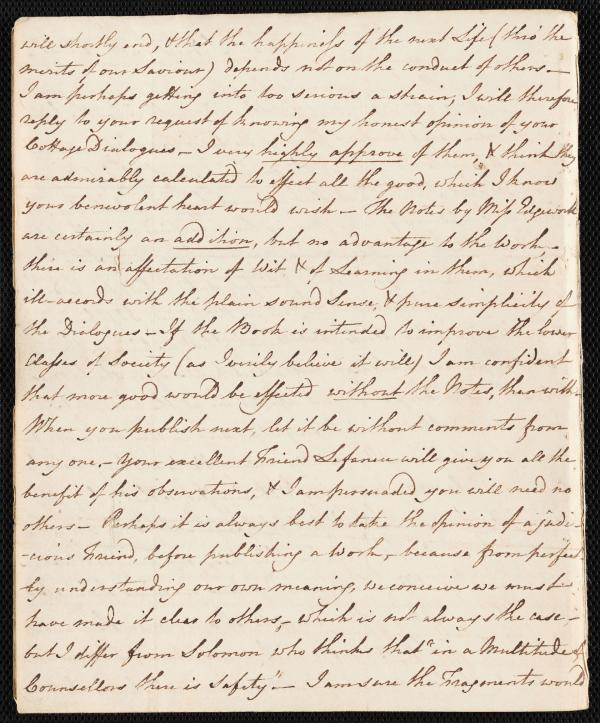 will shortly end, & that the happiness of the next Life (thro' the
merits of our Saviour) depends not on the conduct of others —
I am perhaps getting into too serious a strain, I will therefore
reply to your request of knowing my honest opinion of your
Cottage Dialogues — I very highly approve of them, & think they
are admirably calculated to effect all the good, which I know
your benevolent heart would wish — The Notes by Miss Edgeworth
are certainly an addition, but no advantage to the Work —
there is an affectation of Wit & of Learning in them, which
ill-accords with the plain sound Sense, & pure simplicity of
the Dialogues — If the Book is intended to improve the lower
Classes of Society (as I verily believe it will) I am confident
that more good would be effected without the Notes, than with —
When you publish next, let it be without comments from
any one, — Your excellent Friend Lefanu will give you all the
benefit of his observations, & I am persuaded you will need no
others — Perhaps it is always best to take the opinion of a judi-
-cious Friend, before publishing a Work, — because from perfect-
ly understanding our own meaning, we conceive we must
have made it clear to others, — which is not always the case —
but I differ from Solomon who thinks that "in a Multitude of
Counsellors there is Safety" — I am sure the Fragments would